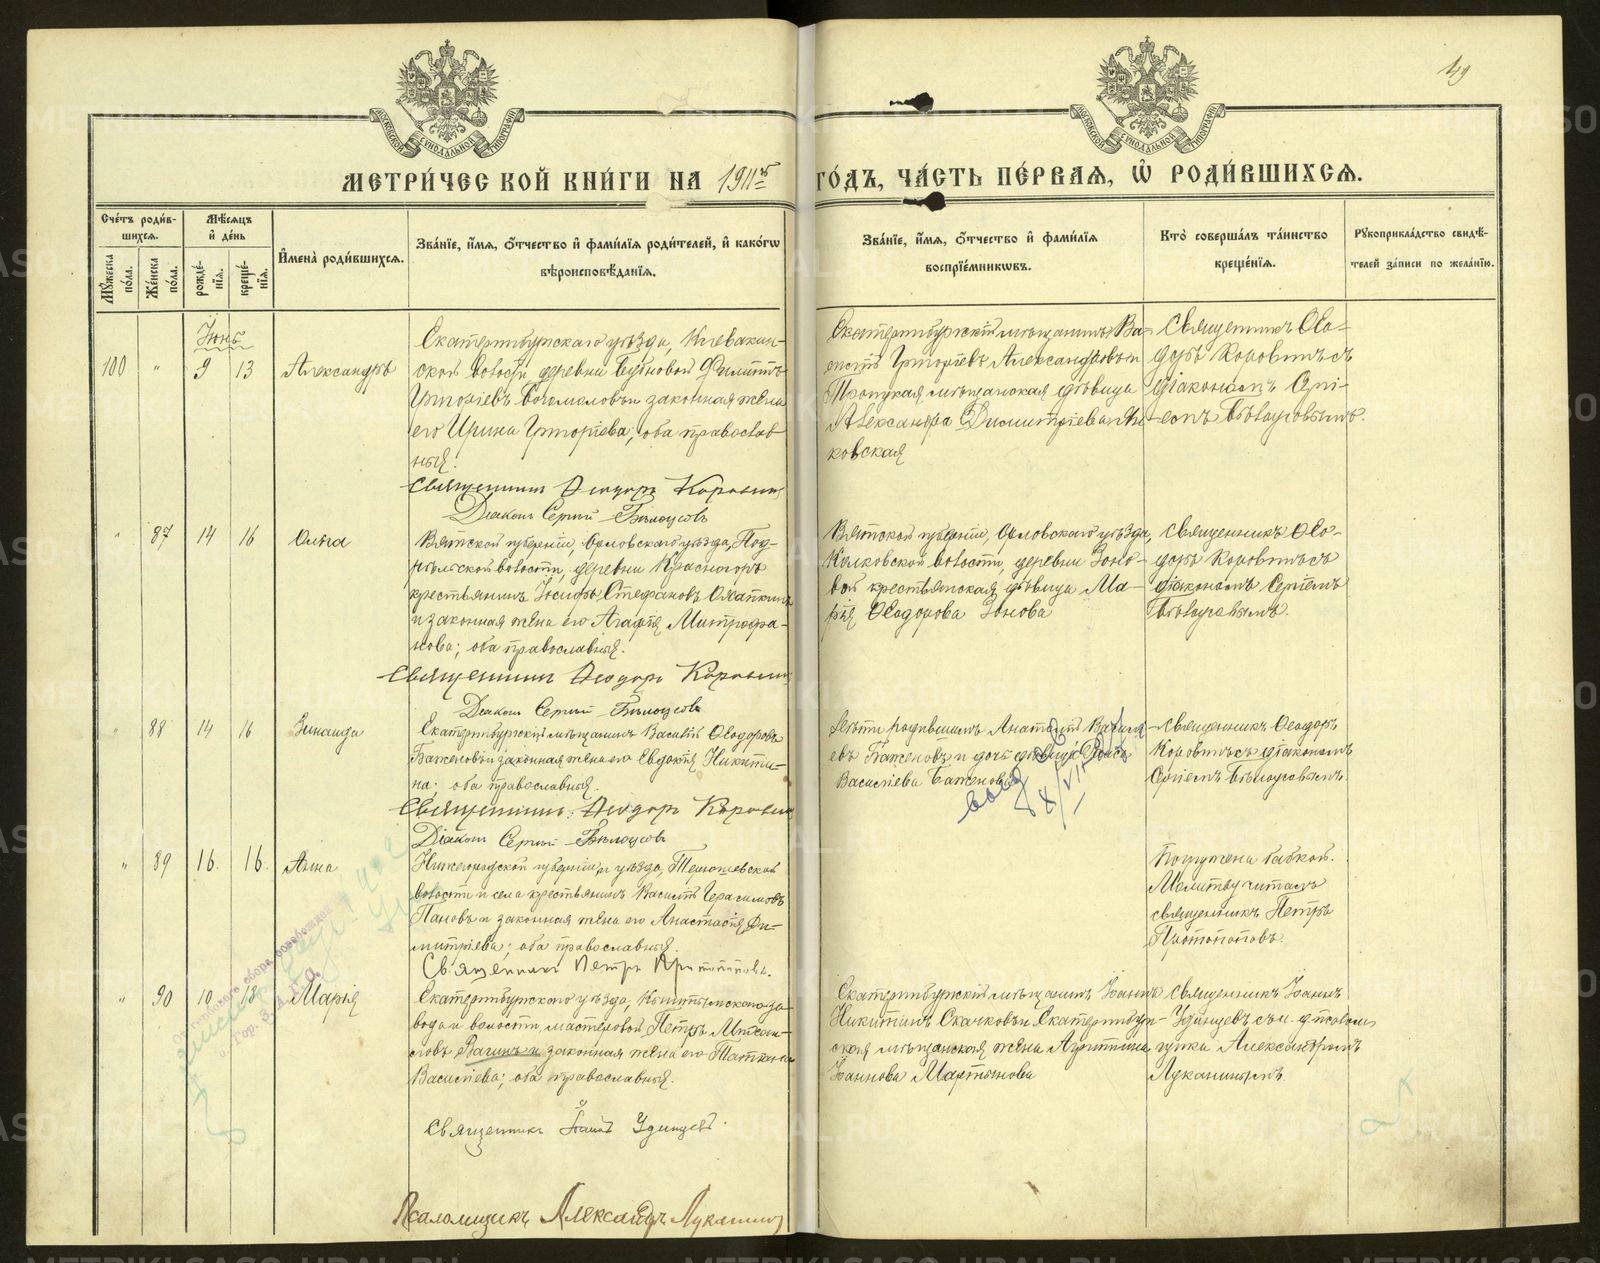 МОСКОВСКОЙ СѴНОДАЛЬНОЙ ТИПОГРАФІИ
МОСКОВСКОЙ СѴНОДАЛЬНОЙ ТИПОГРАФІИ
МЕТРИ́ЧЕСКОЙ КНИ́ГИ НА 1911
ГО́ДЪ, ЧА́СТЬ ПЕ́РВАѦ, Ѡ҆ РОДИ́ВШИХСѦ.
Сче́тъ роди́в-
шихсѧ.
Мꙋ́жеска по́ла.
Же́нска по́ла.
Мѣ́сѧцъ
и҆ де́нь
рожде́-
нїѧ.
креще́-
нїѧ.
И҆мена̀ роди́вшихсѧ.
Зва́нїе, и҆́мѧ, ѻ҆́тчество и҆ фами́лїѧ роди́телей, и҆ како́гѡ
вѣроисповѣ́данїѧ.
Зва́нїе, и҆́мѧ, ѻ҆́тчество и҆ фами́лїѧ
воспрїе́мникѡвъ.
Кто̀ соверша́лъ та́инство
креще́нїѧ.
Рꙋкоприкла́дство свидѣ́-
телей за́писи по жела́нїю.
Іюнь
100 " 9 13 Александръ
Екатеринбургскаго уѣзда, Клевакин-
ской волости деревни Филиппъ
Григоріевъ Богомоловъ и законная жена
его Ирина Григоріева; оба православ-
ные.
Священникъ Ѳеодоръ Коровинъ
Діаконъ Сергій Бѣлоусовъ
Екатеринбургскій мѣщанинъ Ва-
силій Григоріевъ Александровъ и
Троицкая мѣщанская дѣвица
Александра Димитріева
ковская
Священникъ Ѳео-
доръ Коровинъ съ
діакономъ Сергі-
емъ Бѣлоусовымъ.
" 87 14 16 Ольга
Вятской губерніи, Орловскаго уѣзда, Под-
волости, деревни Красногоръ
крестьянинъ Іосифъ Стефановъ
и законная жена его Агафія Митрофа-
нова; оба православные.
Священникъ Ѳеодоръ Коровинъ
Діаконъ Сергій Бѣлоусовъ
Вятской губерніи, Орловскаго уѣзда,
волости, деревни Зоно-
вой крестьянская дѣвица Ма-
рія Ѳеодорова Зонова
Священникъ Ѳео-
доръ Коровинъ съ
діакономъ Сергіемъ
Бѣлоусовымъ.
" 88 14 16 Зинаида
Екатеринбургскій мѣщанинъ Василій Ѳеодоровъ
Баженовъ и законная жена его Евдокія Никити-
на; оба православные.
Священникъ Ѳеодоръ Коровинъ
Діаконъ Сергій Бѣлоусовъ
Дѣти родившихъ Анатолій Василі-
евъ Баженовъ и дочь дѣвица
Васильева Баженова
Священникъ Ѳеодоръ
Коровинъ съ діакономъ
Сергіемъ Бѣлоусовымъ.
" 89 16 16 Анна
Нижегородской губерніи и уѣзда,
волости и села крестьянинъ Василій Герасимовъ
Пановъ и законная жена его Анастасія Ди-
митріева; оба православные.
Священникъ Петръ Протопоповъ.
Погружена бабкой.
Молитву читалъ
священникъ Петръ
Протопоповъ.
" 90 10 18 Марія
Екатеринбургскаго уѣзда, Кыштымскаго за-
вода и волости, мастеровой Петръ
Вагинъ и законная жена его Татіана
Васильева; оба православные.
Священникъ Іоаннъ Удинцевъ.
Екатеринбургскій мѣщанинъ Іоаннъ
Никитинъ Скачковъ и Екатеринбург-
ская мѣщанская жена Агриппина
Іоаннова Мартынова
Священникъ Іоаннъ
Удинцевъ съ и. д. псалом-
щика Александромъ
Луканинымъ.
Псаломщикъ Александръ Луканинъ